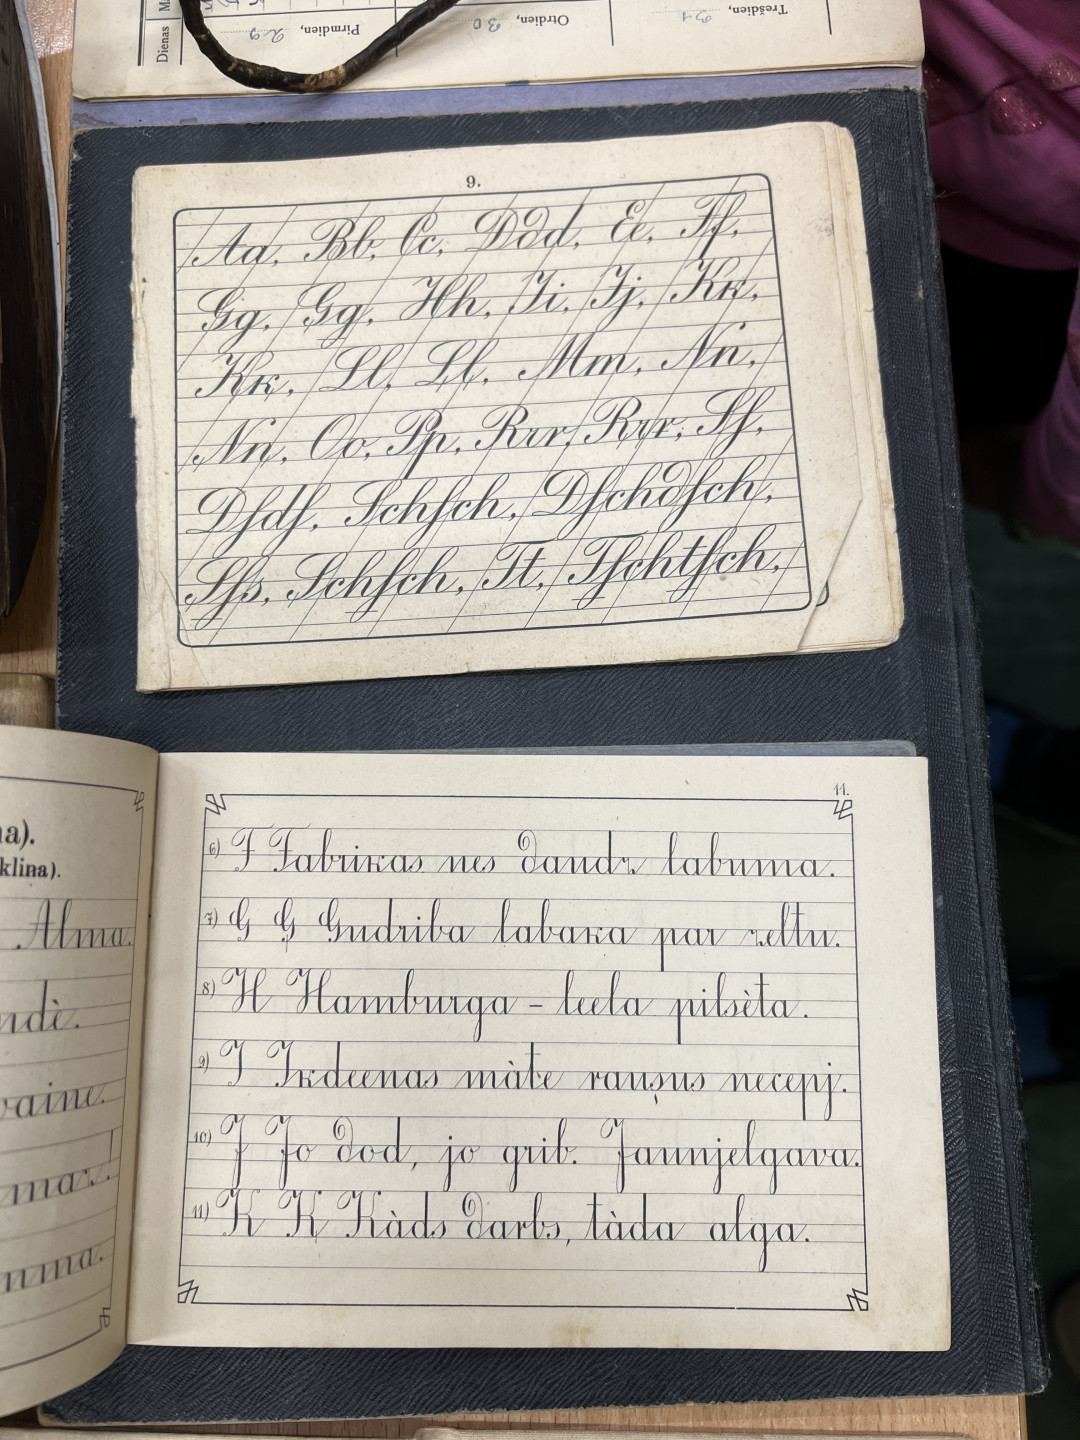 Dienas
Pirmdien, 29
Otrdien, 30
Trešdien, 31
9.
Aa, Bb, Cc, Ddd, Ee, Ff,
Gg, Gg, Hh, Ii, Jj, Kk,
Kk, Ll, Ll, Mm, Nn,
Nn, Oo, Pp, Rrr, Rrr, Sſ,
Dſdſ, Schſch, Dſchdſch,
Sſs, Schſch, Tt, Tſchtſch,
na).
klina).
Alma.
ndè.
vaine.
11.
6) F Fabrikas nes daudz labuma.
7) G G Gudriba labaka par zeltu.
8) H Hamburga – leela pilsèta.
9) I Ikdeenas màte raušus necepj.
10) J Jo dod, jo grib. Jaunjelgava.
11) K K Kàds darbs, tàda alga.